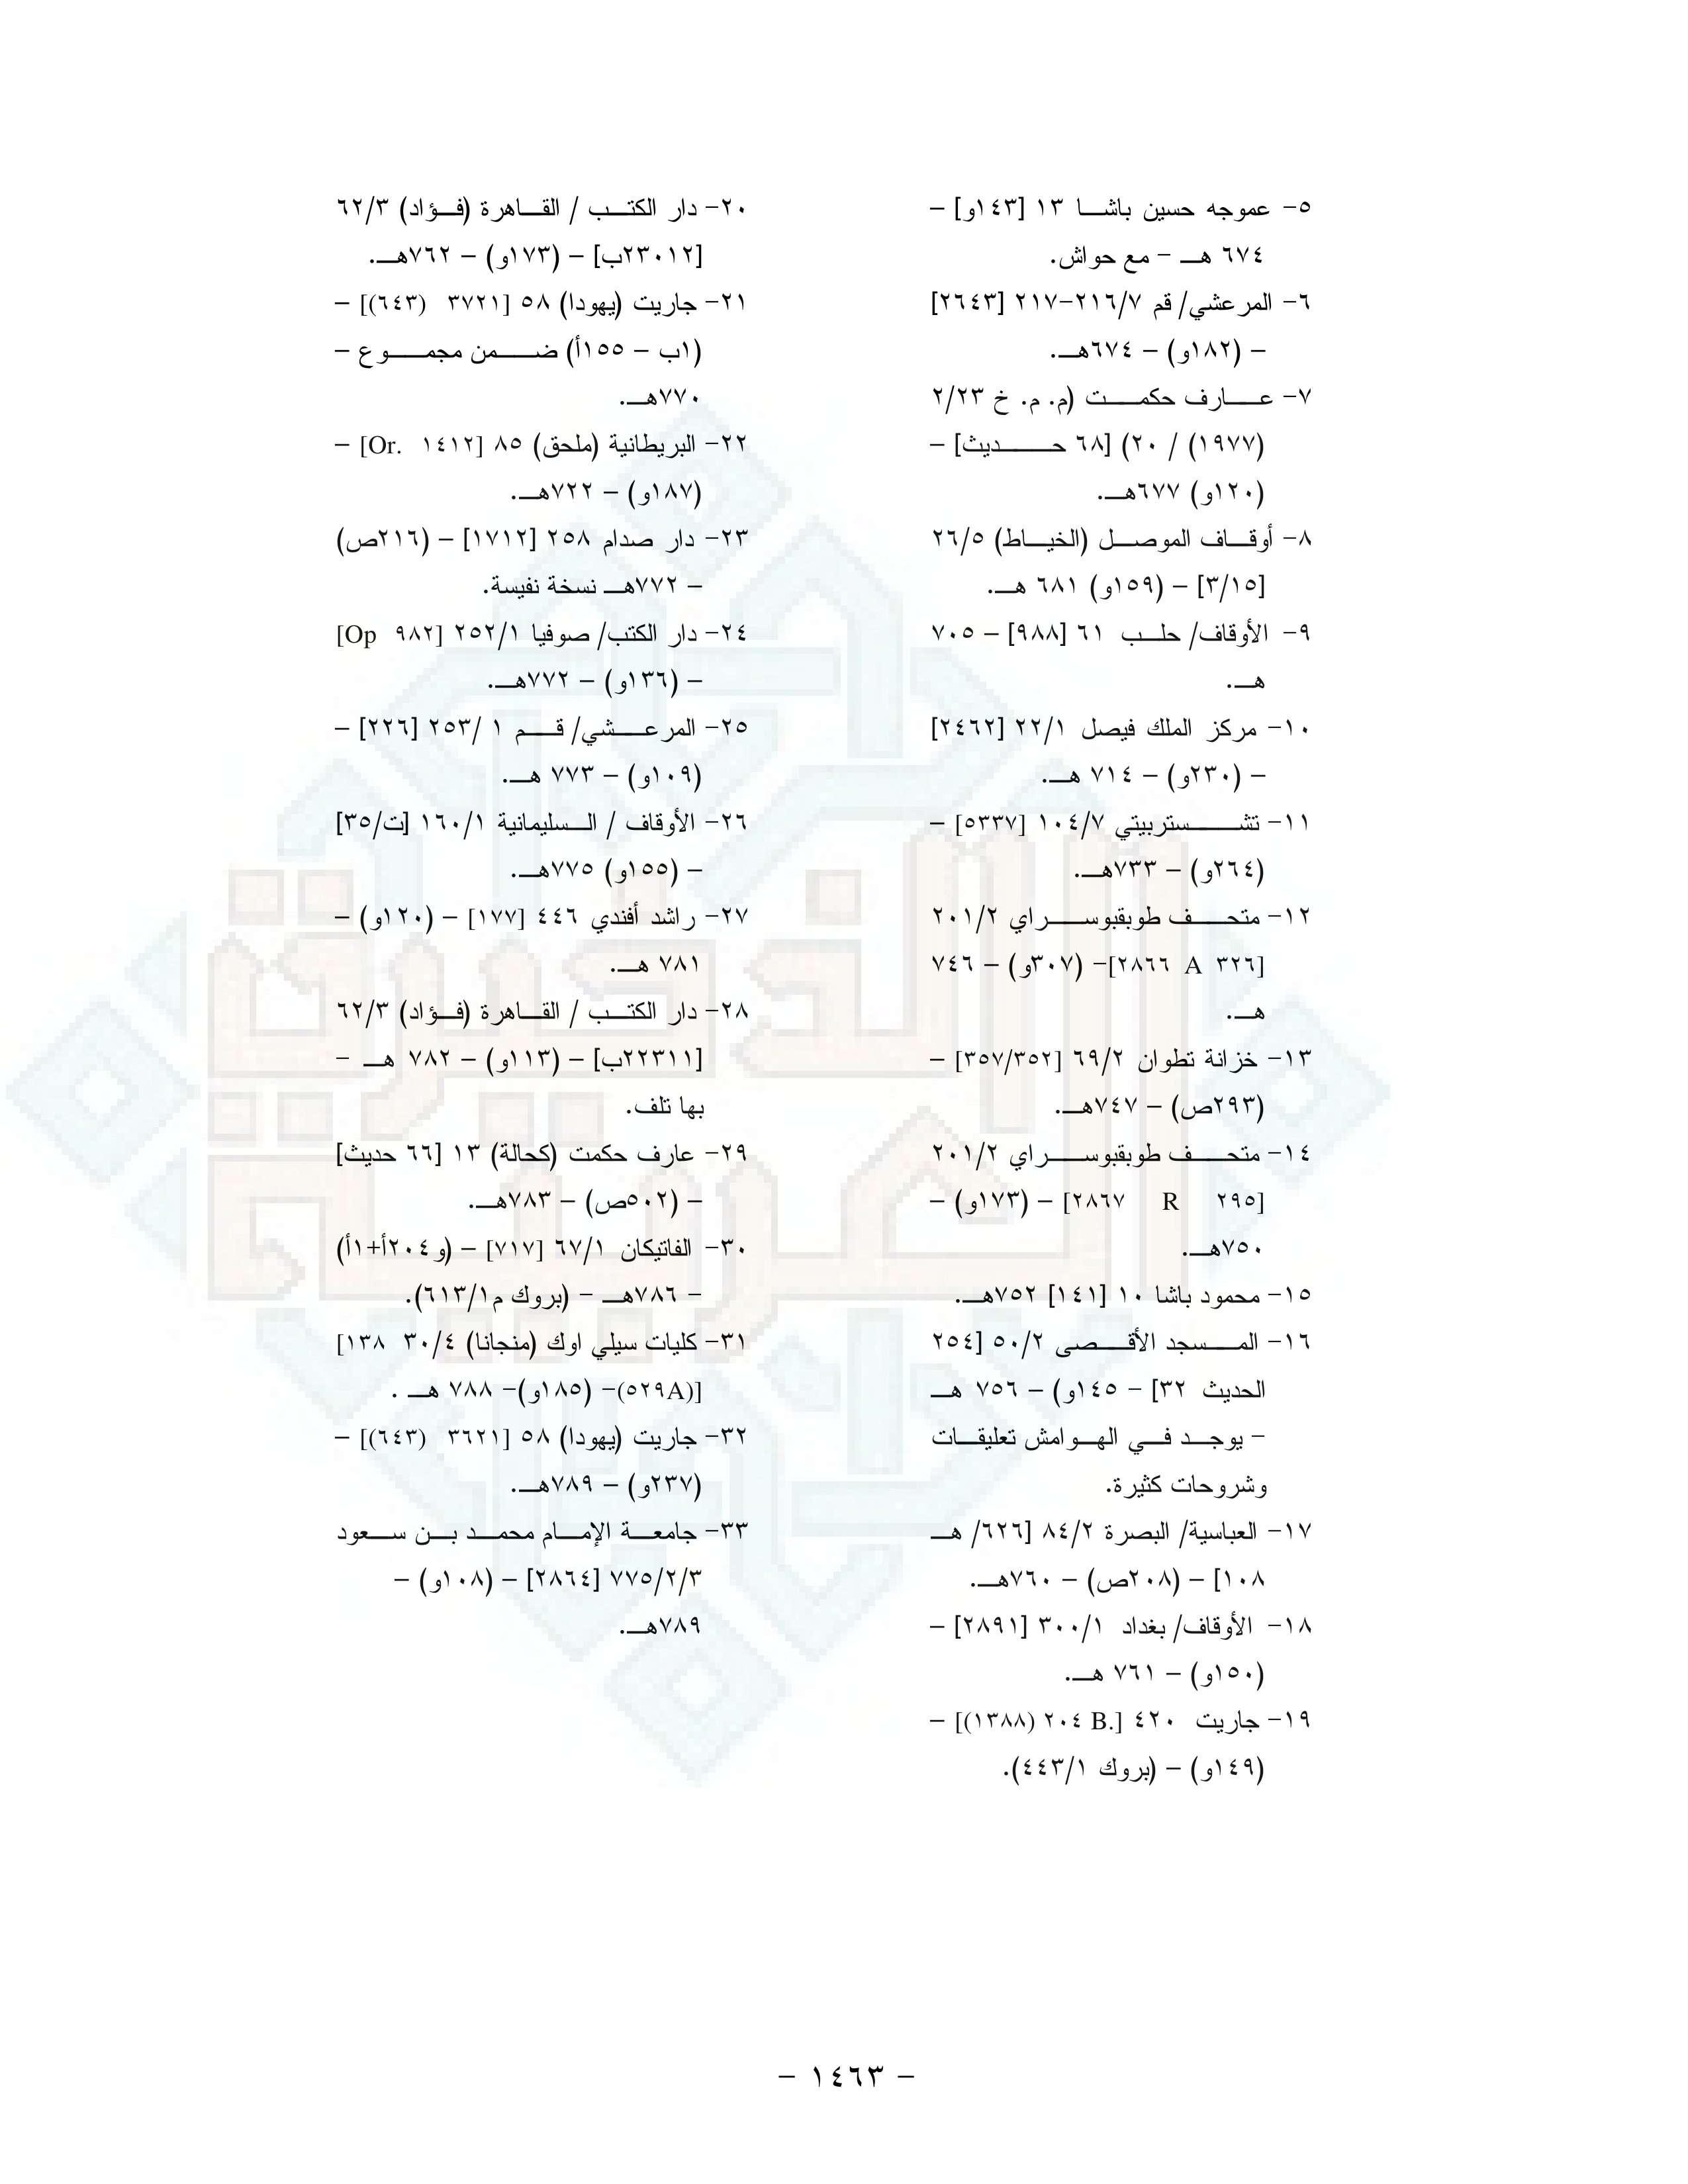 ٥- عموجه حسين باشا ١٣ [١٤٣و] –
٦٧٤ هـ – مع حواش.
٦- المرعشي/ قم ٢١٦/٧-٢١٧ [٢٦٤٣]
– (١٨٢و) – ٦٧٤هـ.
٧- عارف حكمت (م. م. خ ٢/٢٣
(١٩٧٧) / ٢٠) [٦٨ حديث] –
(١٢٠و) ٦٧٧هـ.
٨- أوقاف الموصل (الخياط) ٢٦/٥
[٣/١٥] – (١٥٩و) ٦٨١ هـ.
٩- الأوقاف/ حلب ٦١ [٩٨٨] – ٧٠٥
هـ.
١٠- مركز الملك فيصل ٢٢/١ [٢٤٦٢]
– (٢٣٠و) – ٧١٤ هـ.
١١- تشستربيتي ١٠٤/٧ [٥٣٣٧] –
(٢٦٤و) – ٧٣٣هـ.
١٢- متحف طوبقبوسراي ٢٠١/٢
[٢٨٦٦ A ٣٢٦]– (٣٠٧و) – ٧٤٦
هـ.
١٣- خزانة تطوان ٦٩/٢ [٣٥٧/٣٥٢] –
(٢٩٣ص) – ٧٤٧هـ.
١٤- متحف طوبقبوسراي ٢٠١/٢
[٢٨٦٧ R ٢٩٥] – (١٧٣و) –
٧٥٠هـ.
١٥- محمود باشا ١٠ [١٤١] ٧٥٢هـ.
١٦- المسجد الأقصى ٥٠/٢ [٢٥٤
الحديث ٣٢] – ١٤٥و) – ٧٥٦ هـ
– يوجد في الهوامش تعليقات
وشروحات كثيرة.
١٧- العباسية/ البصرة ٨٤/٢ [٦٢٦/ هـ
١٠٨] – (٢٠٨ص) – ٧٦٠هـ.
١٨- الأوقاف/ بغداد ٣٠٠/١ [٢٨٩١] –
(١٥٠و) – ٧٦١ هـ.
١٩- جاريت ٤٢٠ [.B ٢٠٤ (١٣٨٨)] –
(١٤٩و) – (بروك ٤٤٣/١).
٢٠- دار الكتب / القاهرة (فؤاد) ٦٢/٣
[٢٣٠١٢ب] – (١٧٣و) – ٧٦٢هـ.
٢١- جاريت (يهودا) ٥٨ [٣٧٢١ (٦٤٣)] –
(١ب – ١٥٥أ) ضمن مجموع –
٧٧٠هـ.
٢٢- البريطانية (ملحق) ٨٥ [Or. ١٤١٢] –
(١٨٧و) – ٧٢٢هـ.
٢٣- دار صدام ٢٥٨ [١٧١٢] – (٢١٦ص)
– ٧٧٢هـ نسخة نفيسة.
٢٤- دار الكتب/ صوفيا ٢٥٢/١ [Op ٩٨٢]
– (١٣٦و) – ٧٧٢هـ.
٢٥- المرعشي/ قم ١ /٢٥٣ [٢٢٦] –
(١٠٩و) – ٧٧٣ هـ.
٢٦- الأوقاف / السليمانية ١٦٠/١ [ت/٣٥]
– (١٥٥و) ٧٧٥هـ.
٢٧- راشد أفندي ٤٤٦ [١٧٧] – (١٢٠و) –
٧٨١ هـ.
٢٨- دار الكتب / القاهرة (فؤاد) ٦٢/٣
[٢٢٣١١ب] – (١١٣و) – ٧٨٢ هـ –
بها تلف.
٢٩- عارف حكمت (كحالة) ١٣ [٦٦ حديث]
– (٥٠٢ص) – ٧٨٣هـ.
٣٠- الفاتيكان ٦٧/١ [٧١٧] – (و٢٠٤أ+١أ)
– ٧٨٦هـ – (بروك م٦١٣/١).
٣١- كليات سيلي اوك (منجانا) ٣٠/٤ ١٣٨]
[(٥٢٩A)– (١٨٥و)– ٧٨٨ هـ .
٣٢- جاريت (يهودا) ٥٨ [٣٦٢١ (٦٤٣)] –
(٢٣٧و) – ٧٨٩هـ.
٣٣- جامعة الإمام محمد بن سعود
٧٧٥/٢/٣ [٢٨٦٤] – (١٠٨و) –
٧٨٩هـ.
– ١٤٦٣ –
الذخيرة
العربية